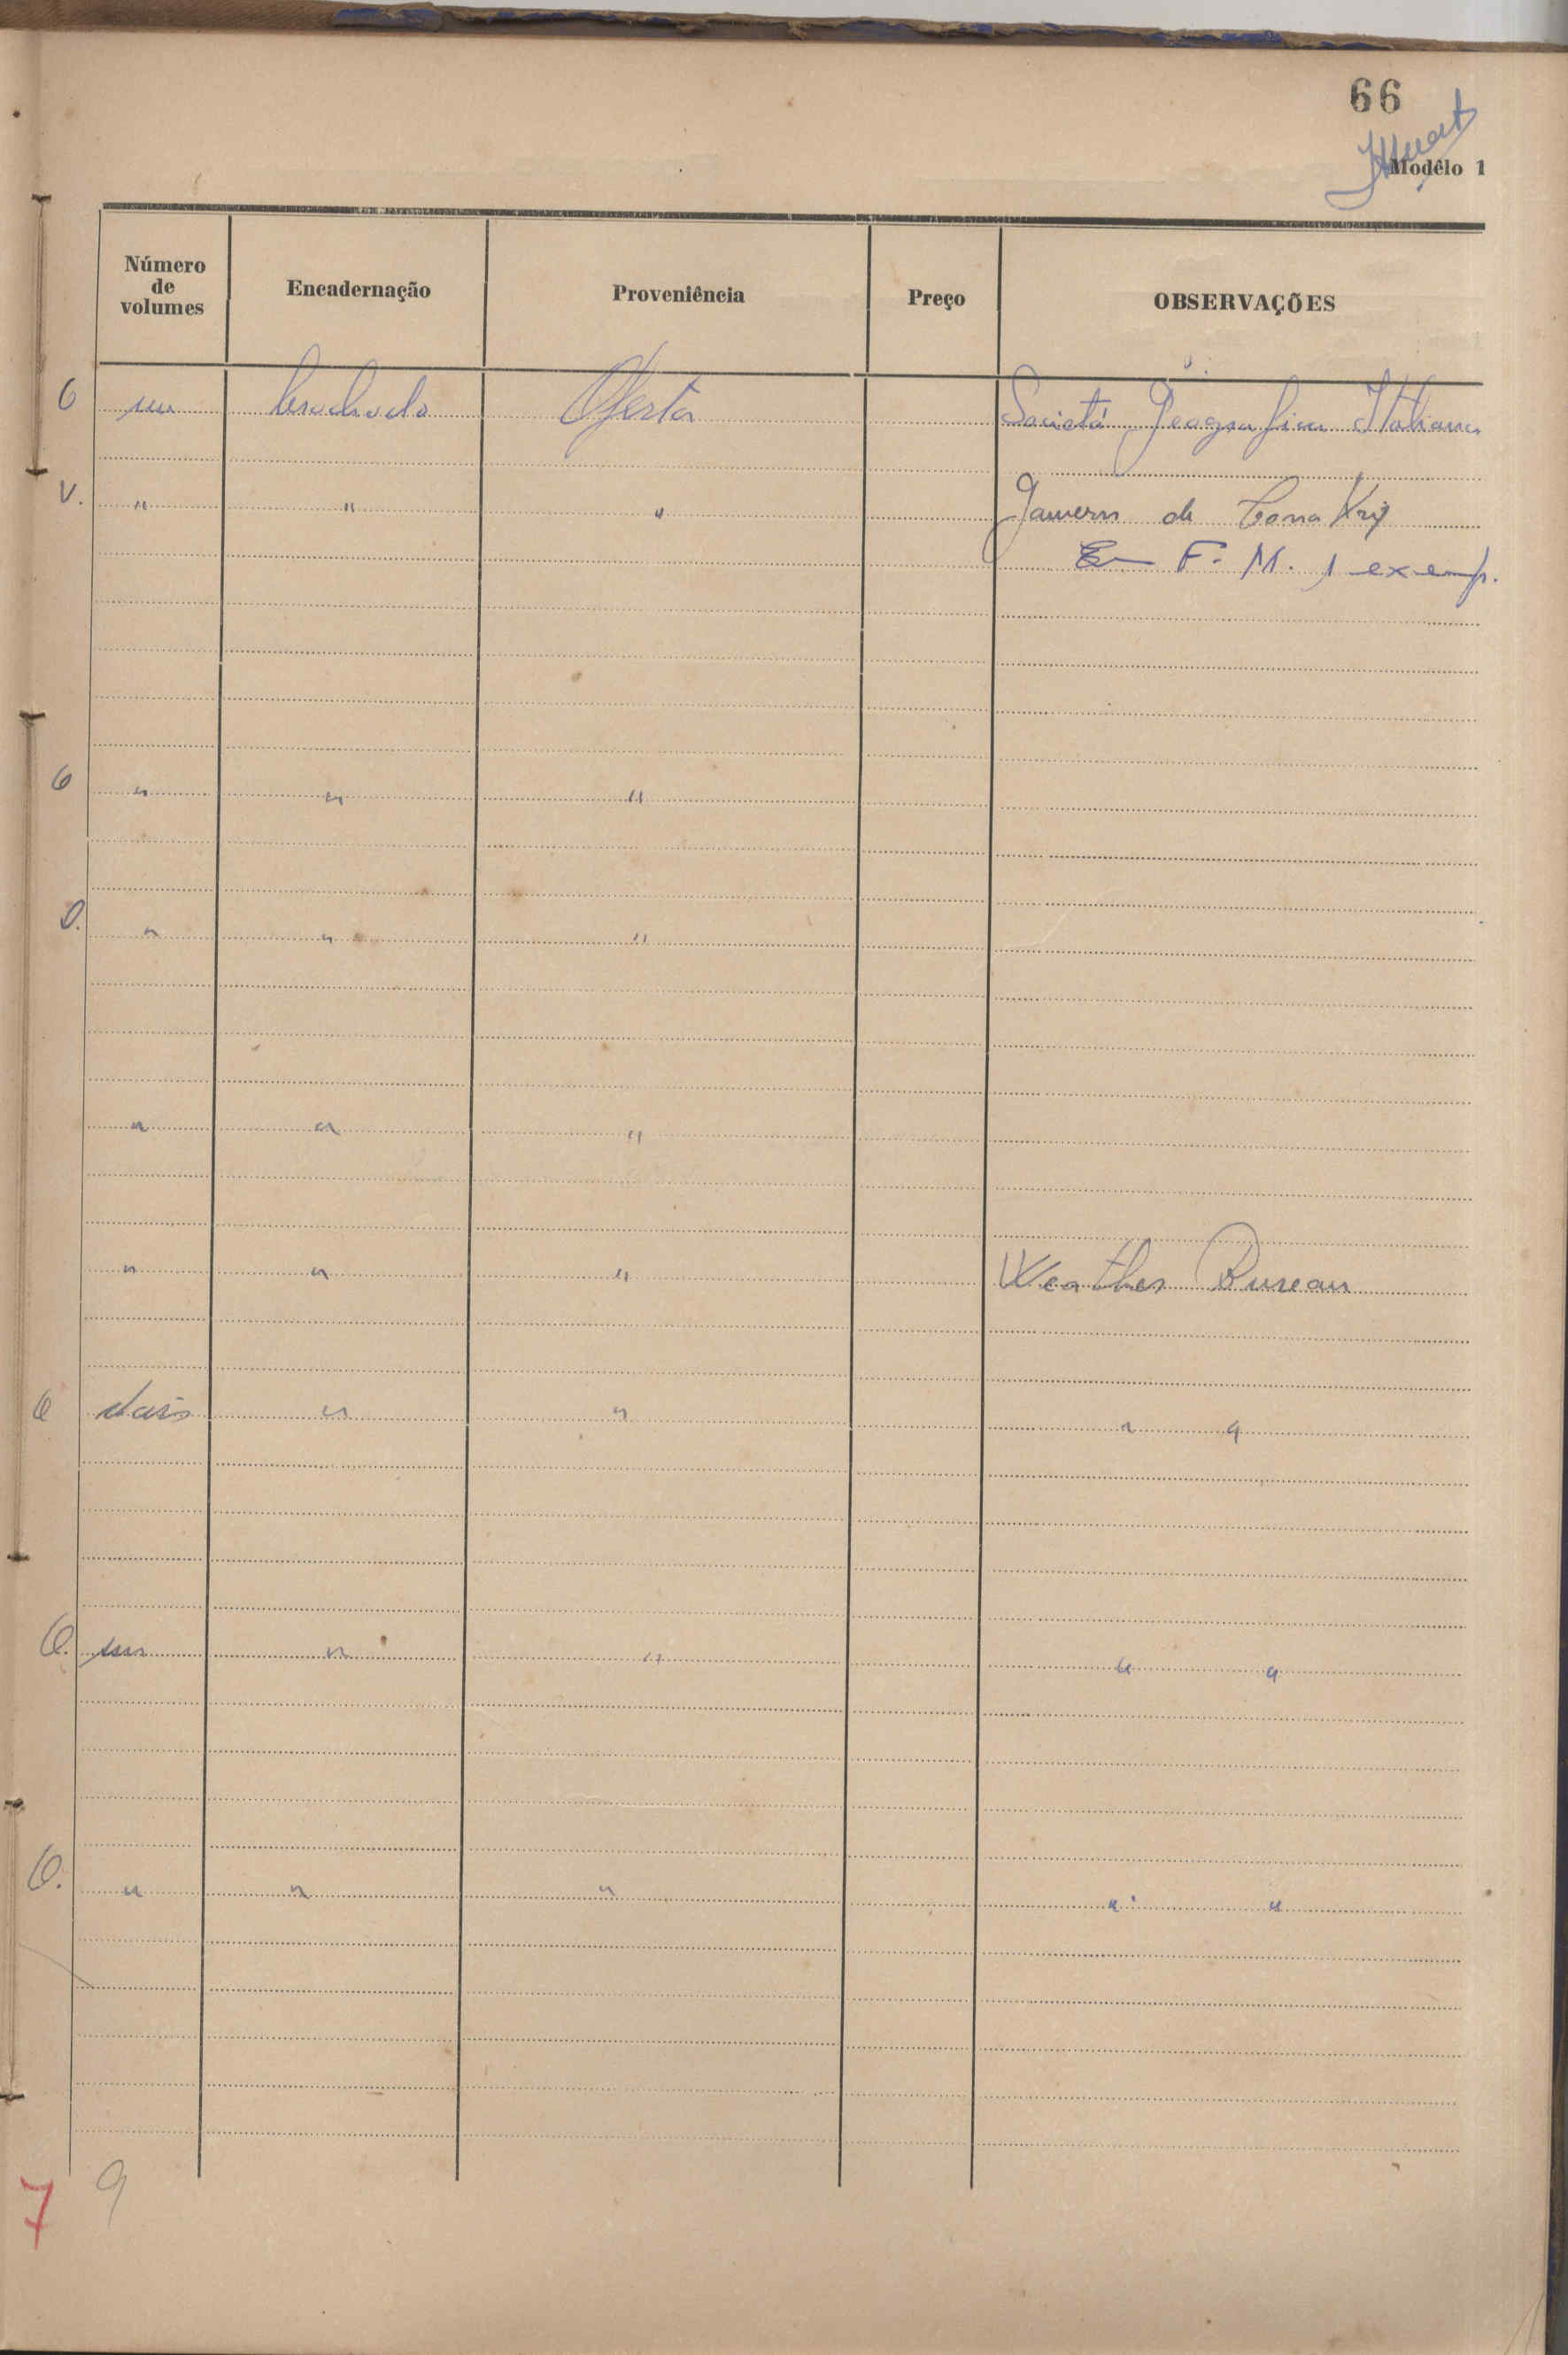 66
Modêlo 1
Número de volumes Encadernação Proveniência Preço OBSERVAÇÕES
O um brochado Oferta Società Geografica Italiana
V. " " " Gouvern de Conakry
Em F. M. 1 exemp.
O " " "
O. " " "
" " "
" " " Weather Bureau
O dois " " " "
O. um " " " "
O. " " " " "
7 9